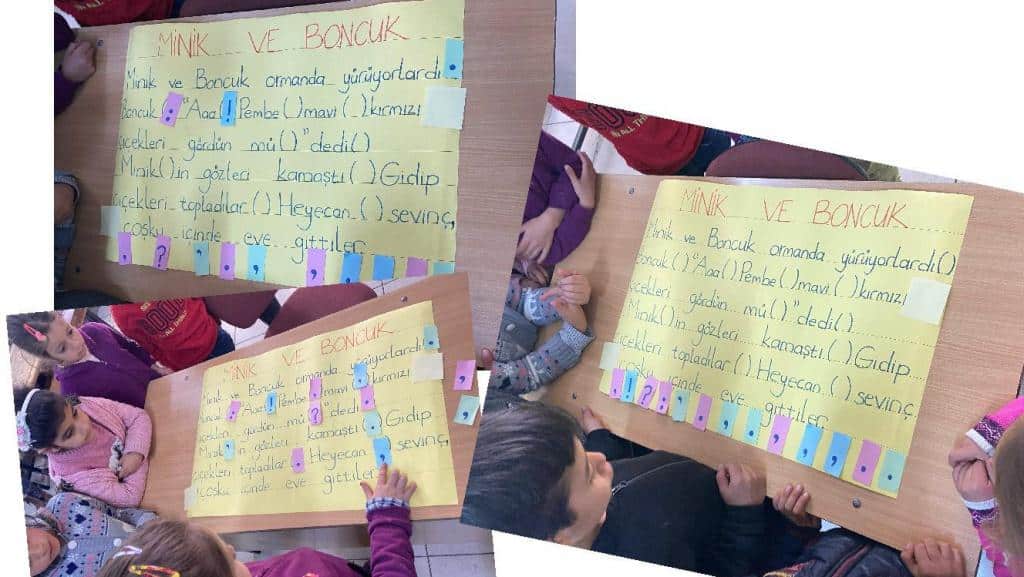 MİNİK VE BONCUK
Minik ve Boncuk ormanda yürüyorlardı.
Boncuk : "Aaa ! Pembe ( ) mavi ( ) kırmızı
çiçekleri gördün mü ( )" dedi ( )
Minik ( ) in gözleri kamaştı ( ) Gidip
çiçekleri topladılar ( ) Heyecan ( ) sevinç,
coşku içinde eve gittiler
MİNİK VE BONCUK
Minik ve Boncuk ormanda yürüyorlardı ( )
Boncuk ( ) "Aaa ( ) Pembe ( ) mavi ( ) kırmızı
çiçekleri gördün mü ( )" dedi ( )
Minik ( ) in gözleri kamaştı ( ) Gidip
çiçekleri topladılar ( ) Heyecan ( ) sevinç,
coşku içinde eve gittiler
MİNİK VE BONCUK
Minik ve Boncuk ormanda yürüyorlardı .
Boncuk : "Aaa ! Pembe , mavi , kırmızı
çiçekleri gördün mü ? " dedi .
Minik ' in gözleri kamaştı . Gidip
çiçekleri topladılar . Heyecan , sevinç,
coşku içinde eve gittiler